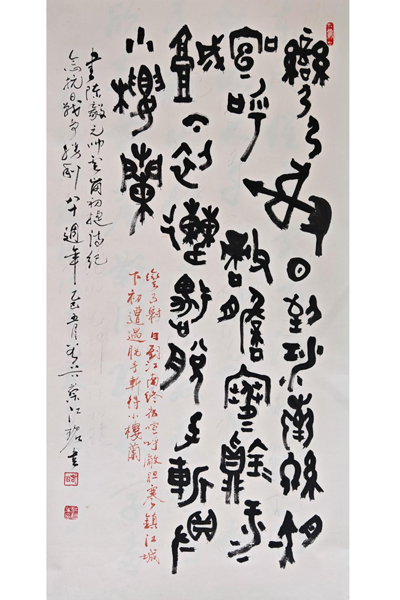 彎弓射日到江南終夜
喧呼敵膽寒鎮江
城下初遭遇脫手斬得
小樓蘭
彎弓射日到江南終夜喧呼敵膽寒鎮江城
下初遭遇脫手斬得小樓蘭
書陳毅元帥崗初捷詩紀
念抗日戰爭勝利八十週年乙巳五月榮江書